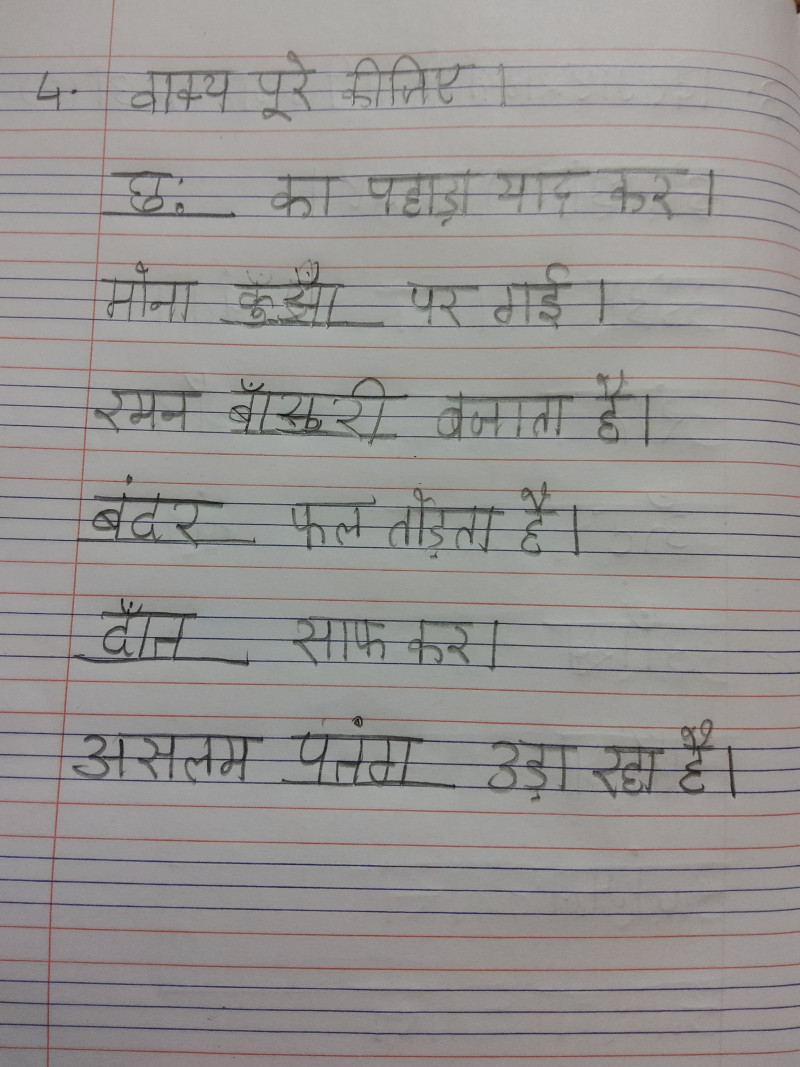 4. वाक्य पूरे कीजिए।
छः का पहाड़ा याद कर।
मोना कुआँ पर गई।
रमन बाँसुरी बजाता है।
बंदर फल तोड़ता है।
दाँत साफ कर।
असलम पतंग उड़ा रहा है।